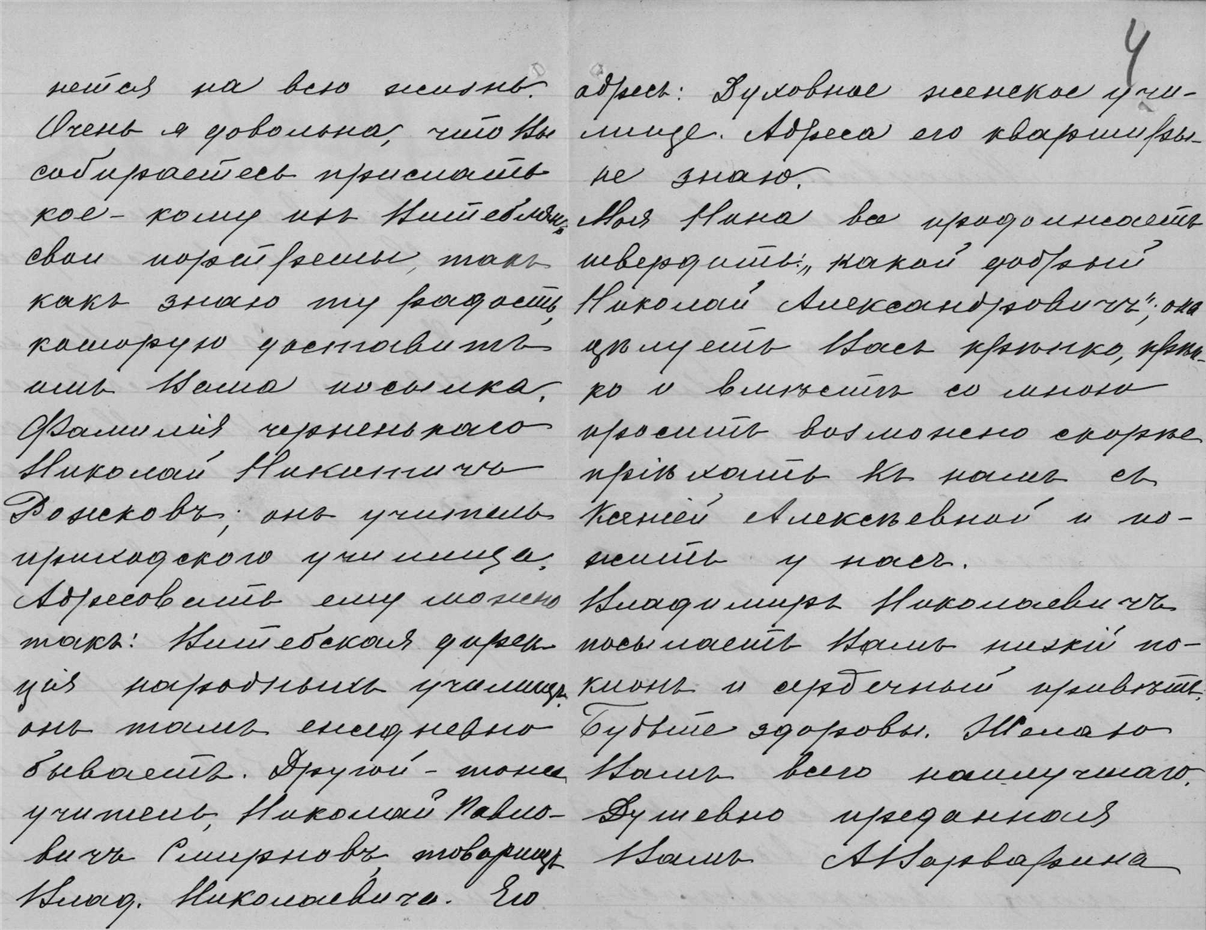 4
нется на всю жизнь.
Очень я довольна, что Вы
собираетесь прислать
кое-кому изъ Витеблянъ
свои портреты, такъ
какъ знаю ту радость,
которую доставитъ
имъ Ваша посылка.
Фамилія черненькаго
Николай Никитичъ
Рожковъ; онъ учитель
приходского училища.
Адресовать ему можно
такъ: Витебская дирек-
ція народныхъ училищъ,
онъ тамъ ежедневно
бываетъ. Другой - тоже
учитель, Николай Павло-
вичъ Смирновъ, товарищъ
Влад. Николаевича. Его
адресъ: Духовное женское учи-
лище. Адреса его квартиры
не знаю.
Моя Нина все продолжаетъ
твердить: „какой добрый
Николай Александровичъ"; она
цѣлуетъ Васъ крѣпко, крѣп-
ко и вмѣстѣ со мною
проситъ возможно скорѣе
пріѣхать къ намъ съ
Ксеніей Алексѣевной и по-
жить у насъ.
Владимиръ Николаевичъ
посылаетъ Вамъ низкій по-
клонъ и сердечный привѣтъ.
Будьте здоровы. Желаю
Вамъ всего наилучшаго.
Душевно преданная
Вамъ АВарварина